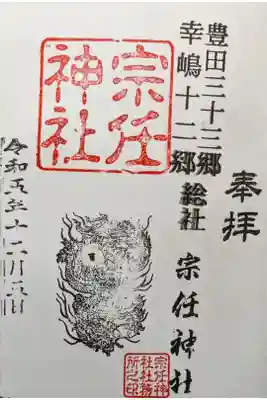 奉拝
豊田三十三郷
幸嶋十二郷
総社 宗任神社
宗任
神社
宗任神
社社務
所之印
令和五年十二月